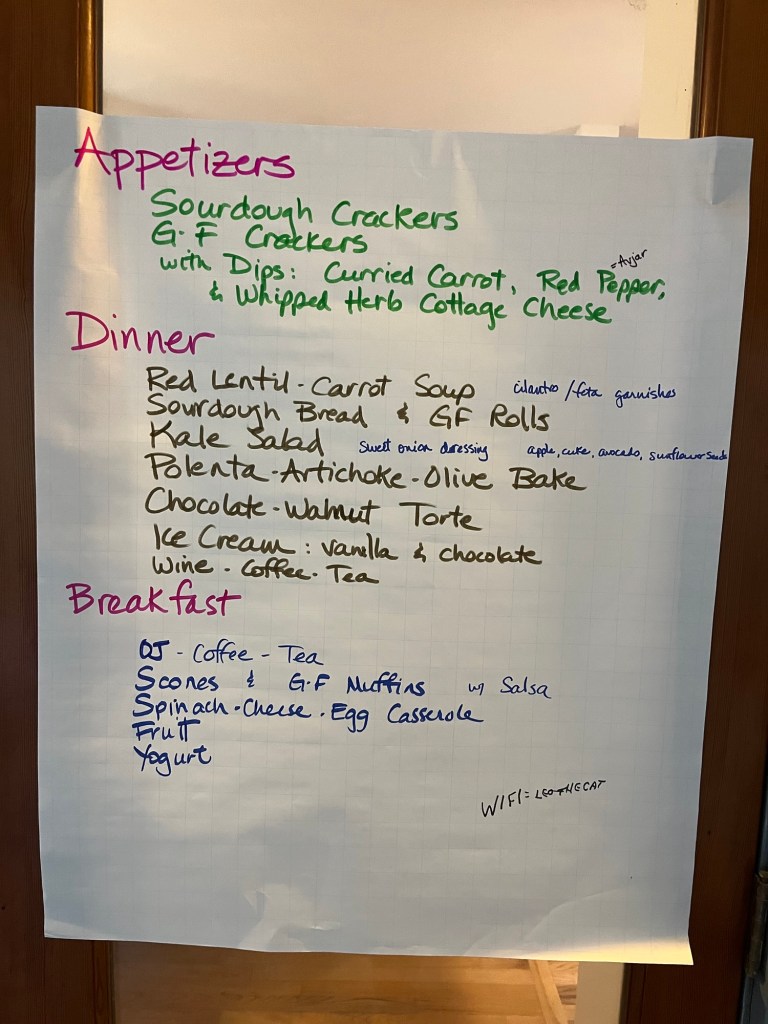 Appetizers
Sourdough Crackers
G.F Crackers
= Avjar
with Dips: Curried Carrot, Red Pepper,
& Whipped Herb Cottage Cheese
Dinner
Red Lentil - Carrot Soup cilantro / feta garnishes
Sourdough Bread & GF Rolls
Kale Salad Sweet onion dressing apple, cuke, avocado, sunflower seeds
Polenta - Artichoke - Olive Bake
Chocolate - Walnut Torte
Ice Cream : vanilla & chocolate
Wine - Coffee - Tea
Breakfast
OJ - Coffee - Tea
Scones & G.F Muffins w/ Salsa
Spinach - Cheese - Egg Casserole
Fruit
Yogurt
WIFI = LEOTHECAT